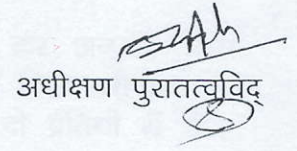 अधीक्षण पुरातत्वविद्